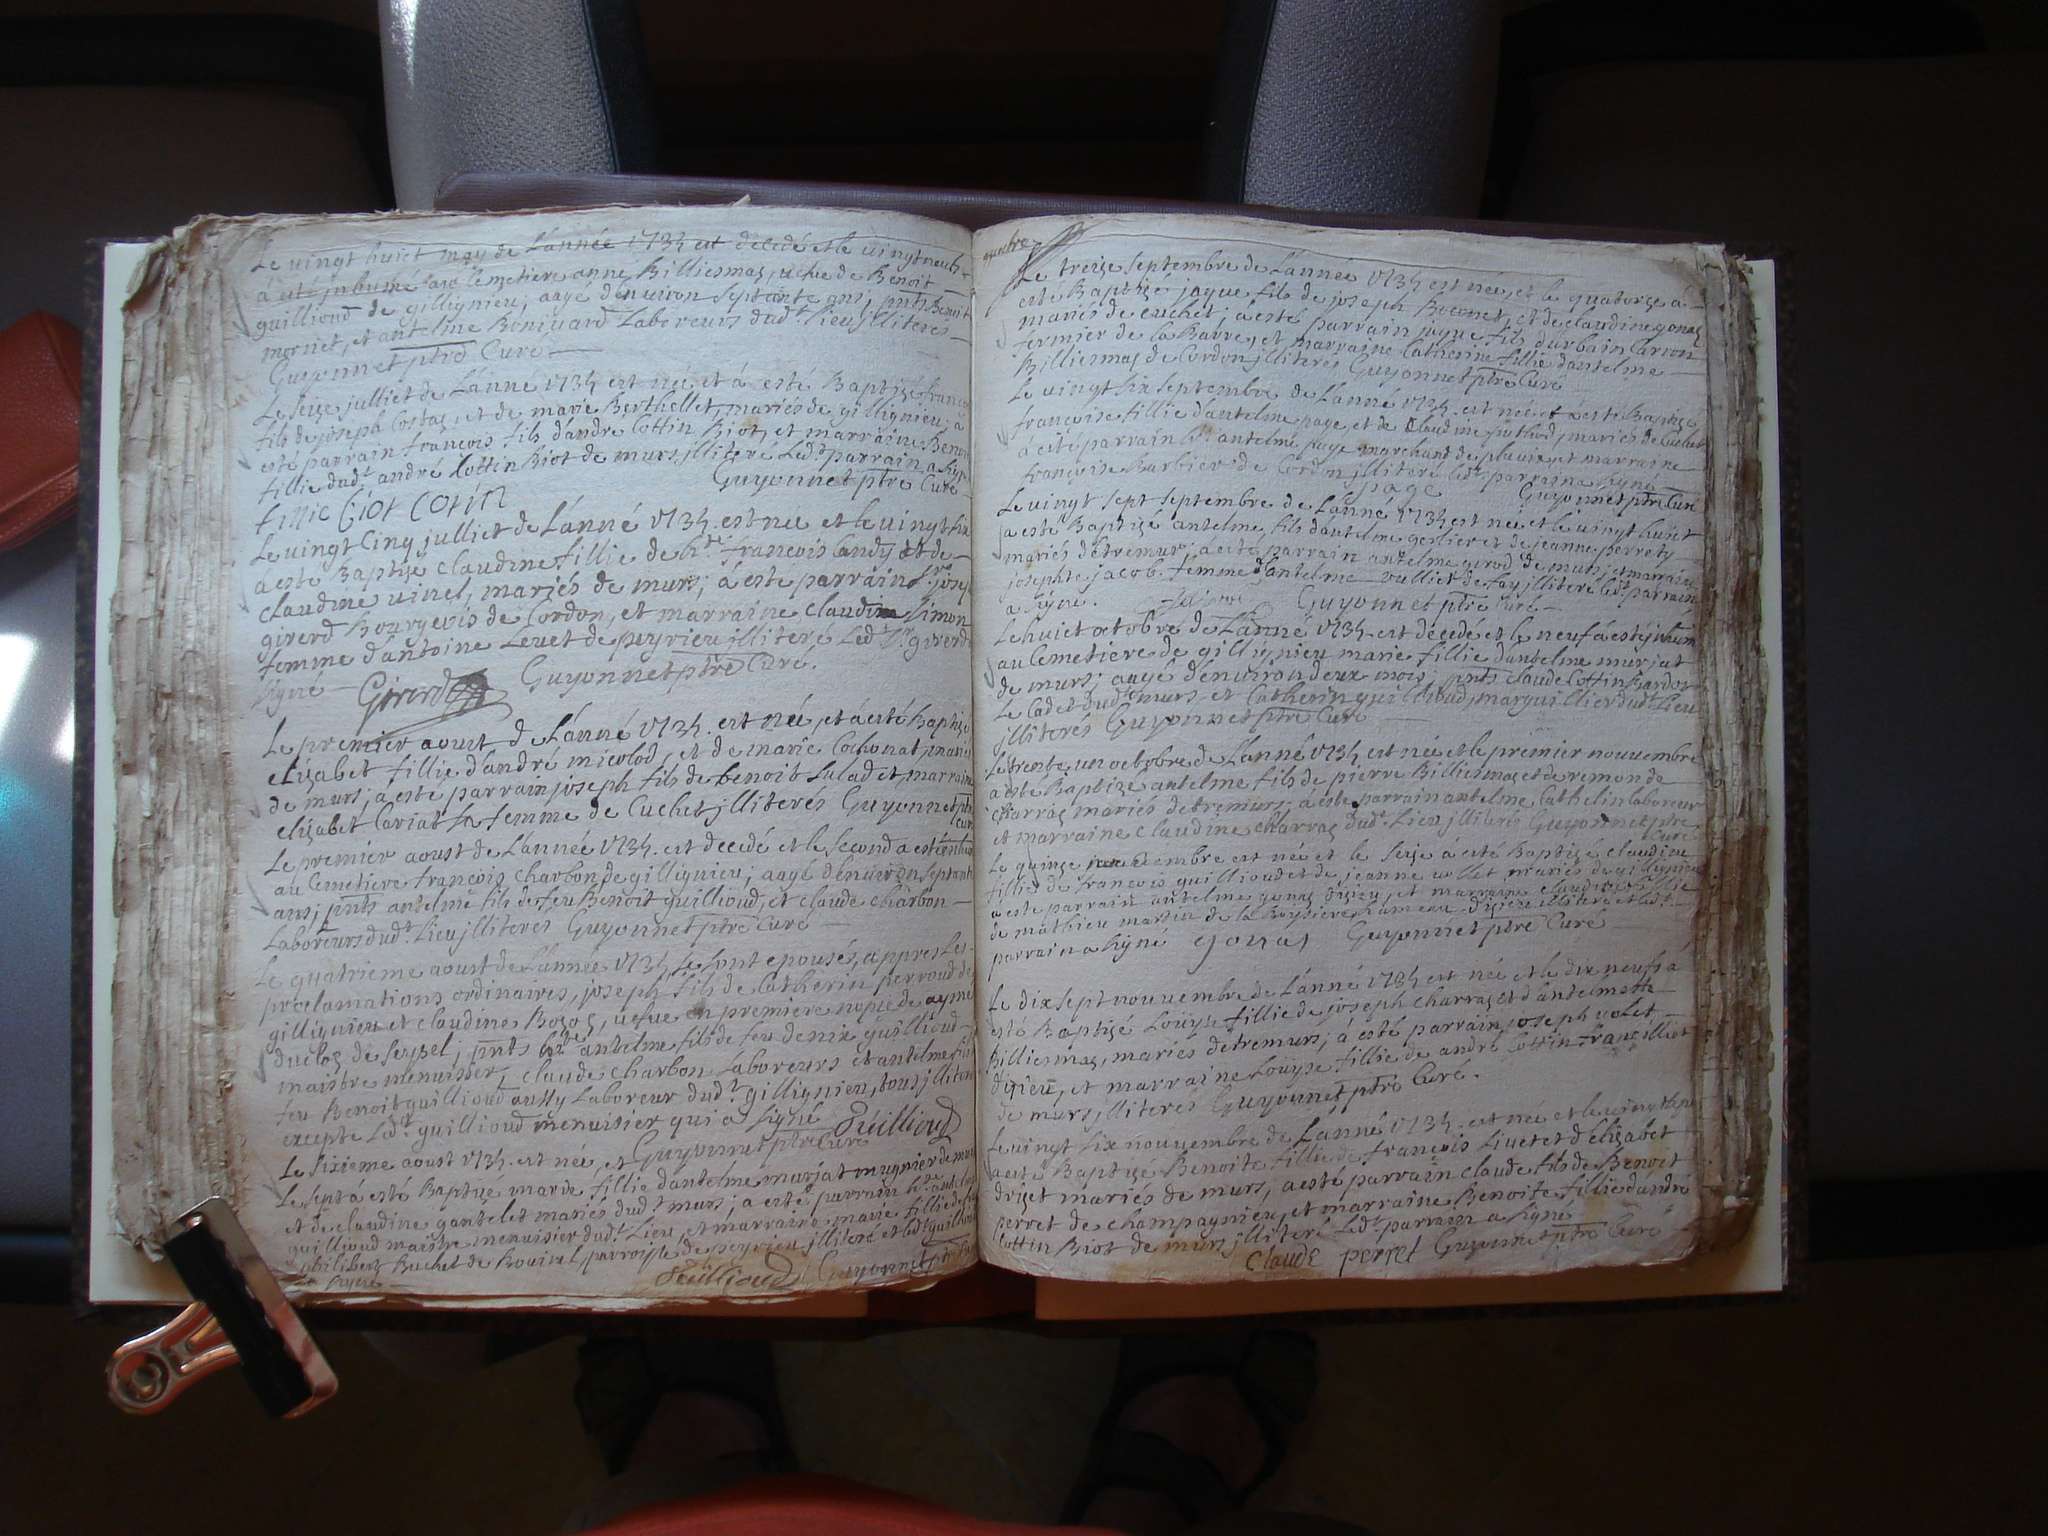 Le vingt huict may de L'année 1734 est decedé et le vingt neufs
à esté jnhumé au Cemetiere anne Billiemaz, vefve de Benoit
guillioud de gillignieu, aagé d'environ septante ans, pnts Benoit
mornet, et antelme Bonivard Laboreurs dud.t lieu jlliteres
Guyonnet ptre Curé
Le seize julliet de L'anné 1734 est né et à esté Baptizé françois
fils de joseph Costaz, et de marie Berthellet, mariés de gillignieu, à
esté parrain françois fils d'andre Cottin Biot, et marraine Benoite
fillie dud.t andré Cottin Biot de murs jlliteré Led.t parrain a signé
Guyonnet ptre Curé
Biot Cotin
Le vingt Cinq julliet de L'anné 1734. est née et le vingt six
a esté Baptizé Claudine fillie de h.ble françois Candy et de
Claudine vinel, mariés de murs; à esté parrain s.r joseph
girerd Bourgeois de Cordon, et marraine Claudine Simon
femme d'antoine Levet de peyrieu jlliteré Led.t s.r girerd
signé Girerd Guyonnet ptre Curé.
Le premier aoust de L'anné 1734. est née, et à esté Baptizé
elizabet fillie d'andré micolod, et de marie Cochonat mariés
de murs; a esté parrain joseph fils de benoit Sulad et marraine
elizabet Cariat sa femme de Cuchet jlliterés Guyonnet ptre
Curé
Le premier aoust de L'année 1734. est decedé et le second a esté
au Cemetiere françois Charbon de gillignieu, aagé d'environ septante
ans; pnts antelme fils de feu Benoit guillioud, et claude charbon
Laboreurs dud.t Lieu jlliteres Guyonnet ptre Curé
Le quatrieme aoust de L'année 1734 se sont epousés, appres Les
proclamations ordinaires, joseph fils de Catherin perroud de
gillignieu et claudine Bozoz, vefve en premiere nopce de ayme
duclos de seyssel; pnts h.ble antelme fils de feu denix guillioud
maistre menuisier, claude charbon Laboreurs et antelme fils
feu Benoit guillioud aussy Laboreur dud.t gillignieu, tous jlliteres
excepté Led.t guillioud menuisier qui a signé Guillioud
Guyonnet ptre Curé
Le sixieme aoust 1734. est née, et
Le sept à esté Baptizé marie fillie d'antelme murjat mugnier de murs
et de claudine gantelet mariés dud.t murs; a esté parrain h.ble antelme
guillioud maistre menuisier dud.t Lieu, et marraine marie fillie de
philibert Buchet de Bovinel parroisse de peyrieu jlliteré et led.t guillioud
a signé Guillioud Guyonnet ptre
Le treize septembre de L'année 1734 est né, et le quatorze à
esté Baptizé jaque fils de joseph Bornet, et de claudine gonaz
mariés de cuchet; a esté parrain jaque fils d'urbain Carron
fermier de la Barre, et marraine Catherine fillie d'antelme
Billiemaz de Cordon jlliterés Guyonnet ptre Curé
Le vingt six septembre de L'anné 1734. est née et à esté Baptizé
françoise fillie d'antelme page, et de Claudine juthod, mariés de Cuchet
à esté parrain s.r antelme page marchand de et marraine
françoise Barbier de Cordon jlliteré led.t parrain a signé
page Guyonnet ptre Curé
Le vingt sept septembre de L'anné 1734 est né et le vingt huict
a esté Baptizé antelme fils d'antelme genlier et de jeanne perrety
mariés de tremurs; à esté parrain antelme girod de murs et marraine
josephte jacob femme d'antelme vulliet de fay jlliteré led.t parrain
a signé. Guyonnet ptre Curé
Le huict octobre de L'anné 1734. est décédé et le neuf à esté jnhumé
au Cemetiere de gillignieu marie fillie d'antelme murjat
de murs; aagé d'environ deux mois; pnts claude Cottin Bardot
Le Cadet dud.t murs et Catherin guillioud, marguillier dud.t Lieu
jlliterés Guyonnet ptre Curé
Le trente un octobre de L'anné 1734 est né et le premier nouvembre
a esté Baptizé antelme fils de pierre Billiemaz et de remonde
Charraz mariés de tremurs; a esté parrain antelme Cathelin laboreur
et marraine claudine Charraz dud.t Lieu jlliterés Guyonnet ptre
Curé
Le quinze nouvembre est née et le seize à esté Baptizé claudine
fillie de françois guillioud et de jeanne vollet mariés de gillignieu
a esté parrain antelme gonaz d'izieu, et marraine claudine fillie
de mathieu martin de la Bruyere hameau d'izieu jlliteré et led.t
parrain a signé gonas Guyonnet ptre Curé
Le dix sept nouvembre de L'anné 1734 est née et le dix neufs à
esté Baptizé Loüyse fillie de joseph Charraz et d'antelmette
Billiemaz, mariés de tremurs; à esté parrain joseph volet
d'izieu, et marraine Loüyse fillie de andré Cottin françilliot
de murs jlliterés Guyonnet ptre Curé.
Le vingt six nouvembre de L'anné 1734. est née et le vingt sept
a esté Baptizé Benoite fillie de françois Livet et d'elizabet
drizet mariés de murs; a esté parrain claude fils de Benoit
perret de champagnieu, et marraine Benoite fillie d'andré
Cottin Biot de murs jlliteré Led.t parrain a signé
Claude perret Guyonnet ptre Curé